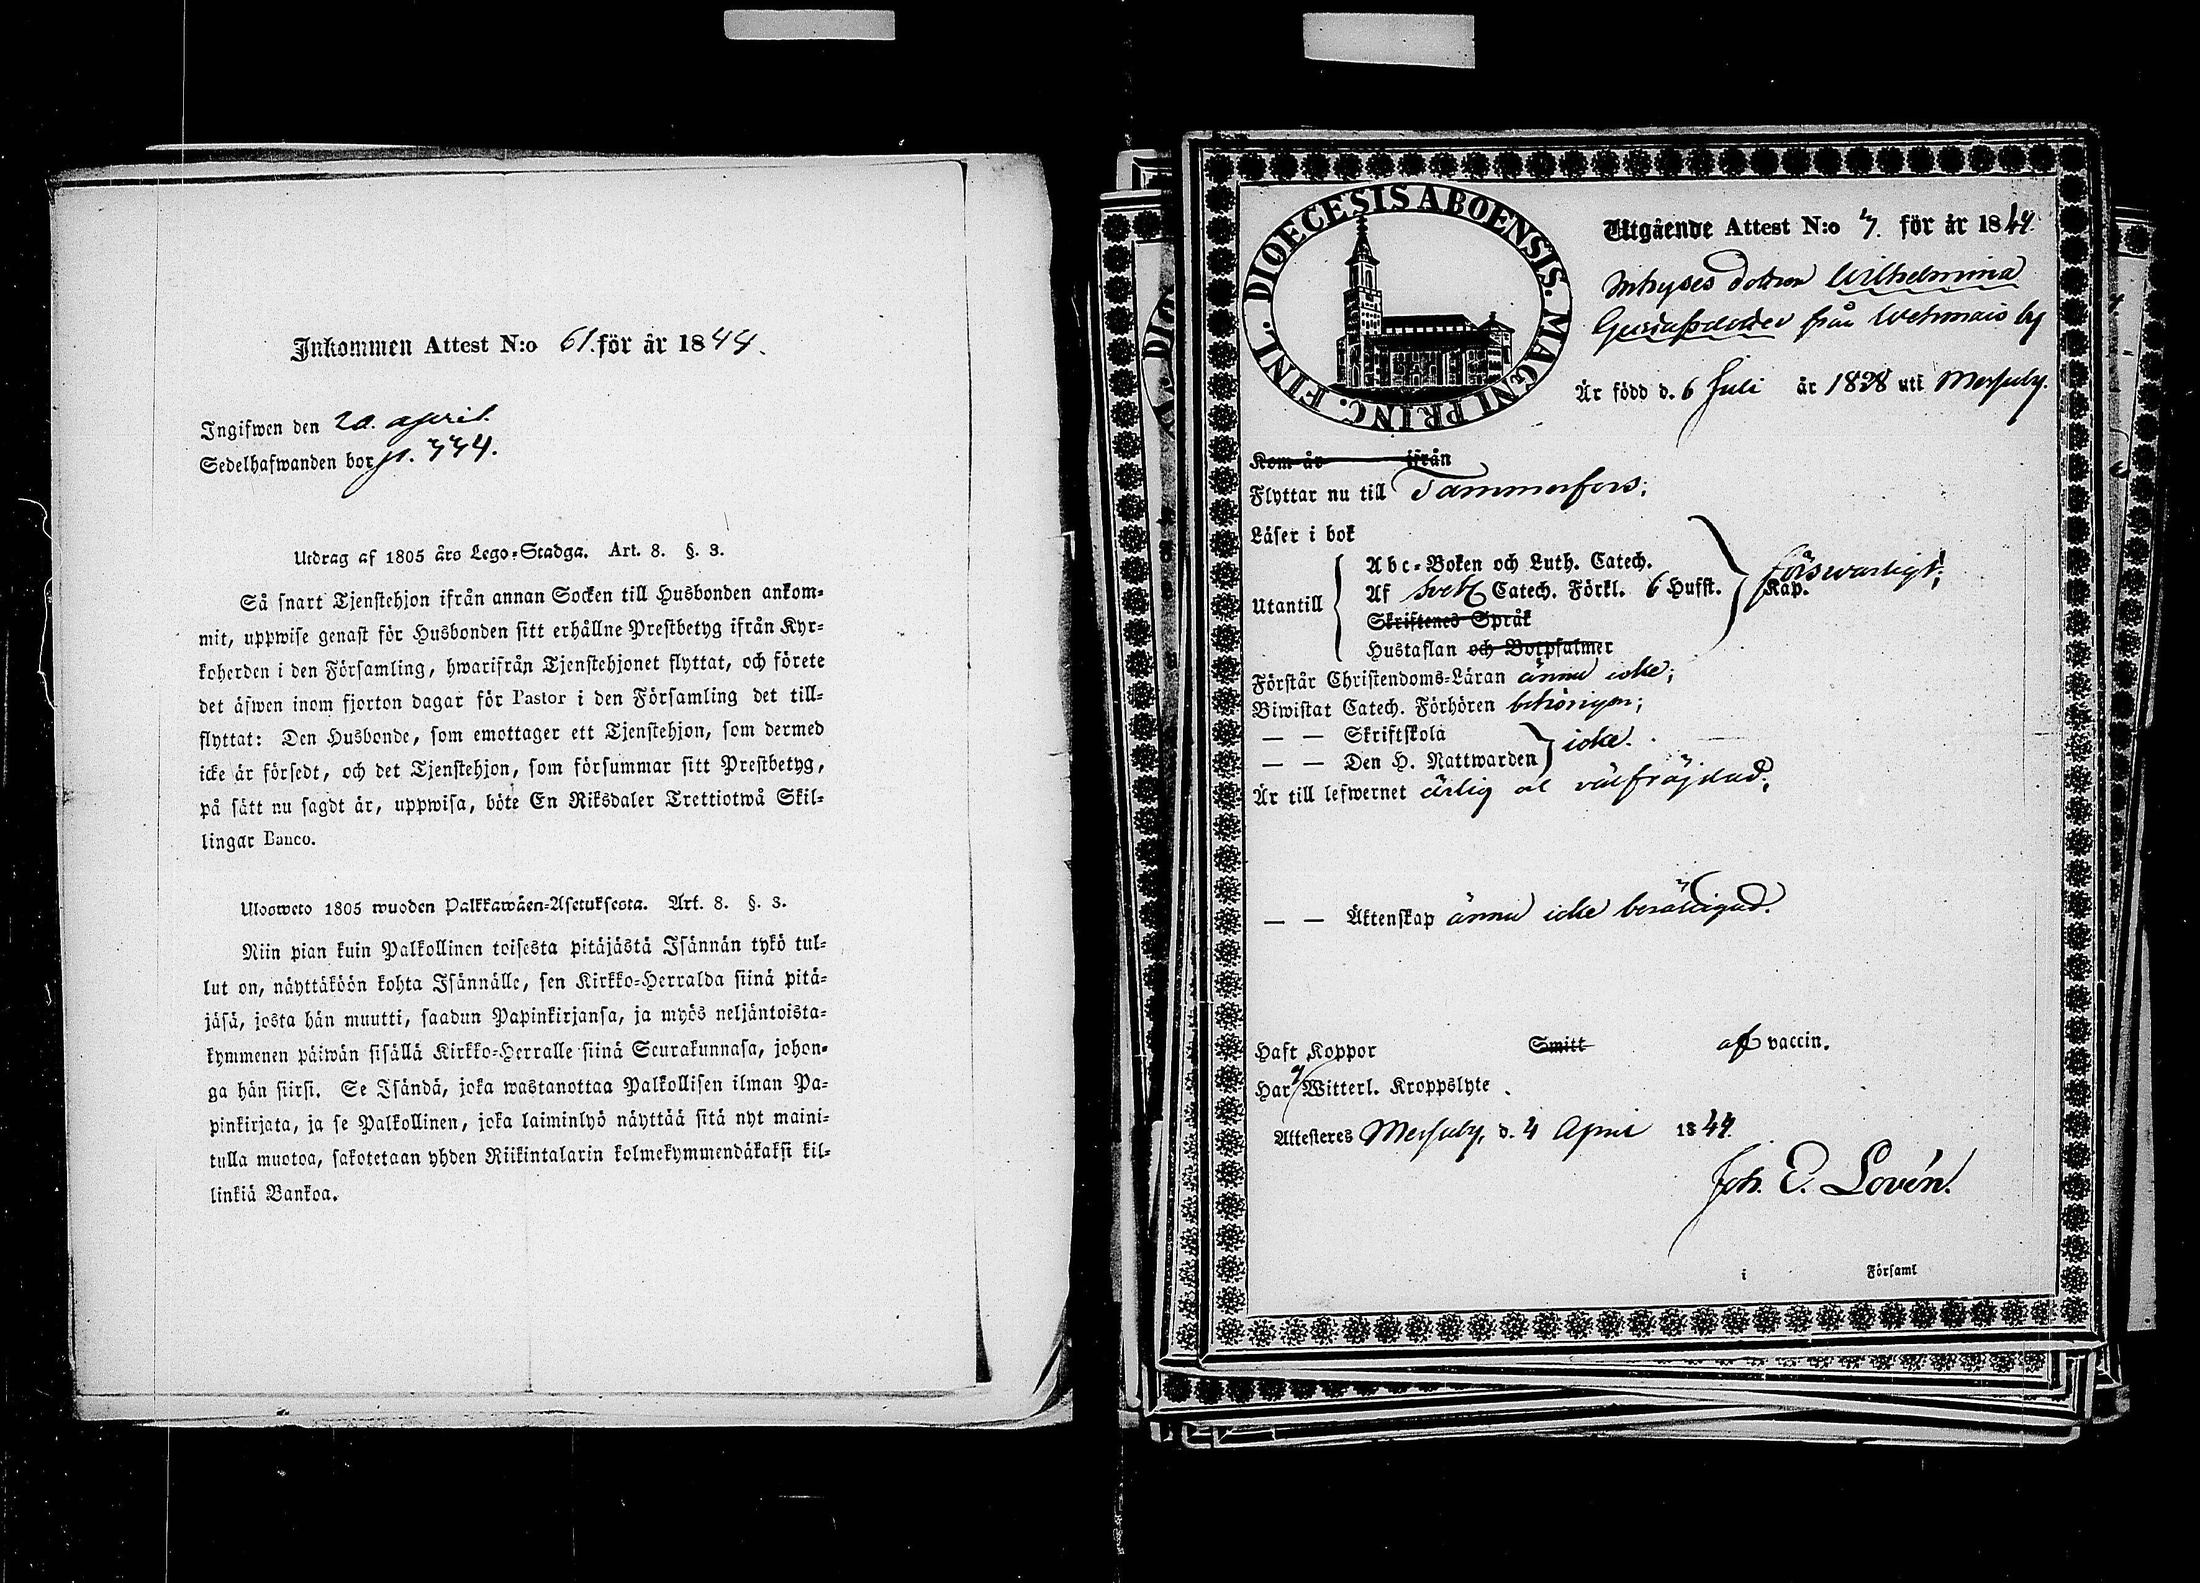 Inkommen Attest N:o 61. för år 1844.
Ingifwen den 20. april.
Sedelhafwanden bor p. 334.
Utdrag af 1805 års Lego-Stadga. Art. 8. §. 3.
Så snart Tjenstehjon ifrån annan Socken till Husbonden ankom-
mit, uppwise genast för Husbonden sitt erhållne Prestbetyg ifrån Kyr-
koherden i den Församling, hwarifrån Tjenstehjonet flyttat, och förete
det äfwen inom fjorton dagar för Pastor i den Församling det till-
flyttat: Den Husbonde, som emottager ett Tjenstehjon, som dermed
icke är försedt, och det Tjenstehjon, som försummar sitt Prestbetyg,
på sätt nu sagdt är, uppwisa, böte En Riksdaler Trettiotwå Skil-
lingar Banco.
Ulosweto 1805 wuoden Palkkawäen-Asetuksesta. Art. 8. §. 3.
Niin pian kuin Palkollinen toisesta pitäjästä Isännän tykö tul-
lut on, näyttäköön kohta Isännälle, sen Kirkko-Herralda siinä pitä-
jäsä, josta hän muutti, saadun Papinkirjansa, ja myös neljäntoista-
kymmenen päiwän sisällä Kirkko-Herralle siinä Seurakunnasa, johon-
ga hän siirsi. Se Isändä, joka wastanottaa Palkollisen ilman Pa-
pinkirjata, ja se Palkollinen, joka laiminlyö näyttää sitä nyt maini-
tulla muotoa, sakotetaan yhden Riikintalarin kolmekymmendäkaksi kil-
linkiä Bankoa.
DIOECESIS ABOENSIS. MAGNI PRINC. FINL.
Utgående Attest N:o 7. för år 1844.
Inhyses dottren Wilhelmina
Gustafsdotter från Wehmais by
Är född d. 6 Juli år 1828 uti Messuby.
Kom år ifrån
Flyttar nu till Tammerfors;
Läser i bok
Abc-Boken och Luth. Catech.
Utantill Af Catech. Förkl. 6 Hufst. Kap. försvarligt;
Skriftenes Språk
Hustaflan och Botpsalmer
Förstår Christendoms-Läran ännu icke;
Biwistat Catech. Förhören behörigen;
— — Skriftskola
— — Den H. Nattwarden icke.
Är till lefwernet ärlig och välfräjdad;
— — Äktenskap ännu icke berättigad.
Haft Koppor Smitt af vaccin.
Har Witterl. Kroppslyte.
Attesteres Messuby, d. 4 April 1844.
Joh. E. Lovén.
i Församl